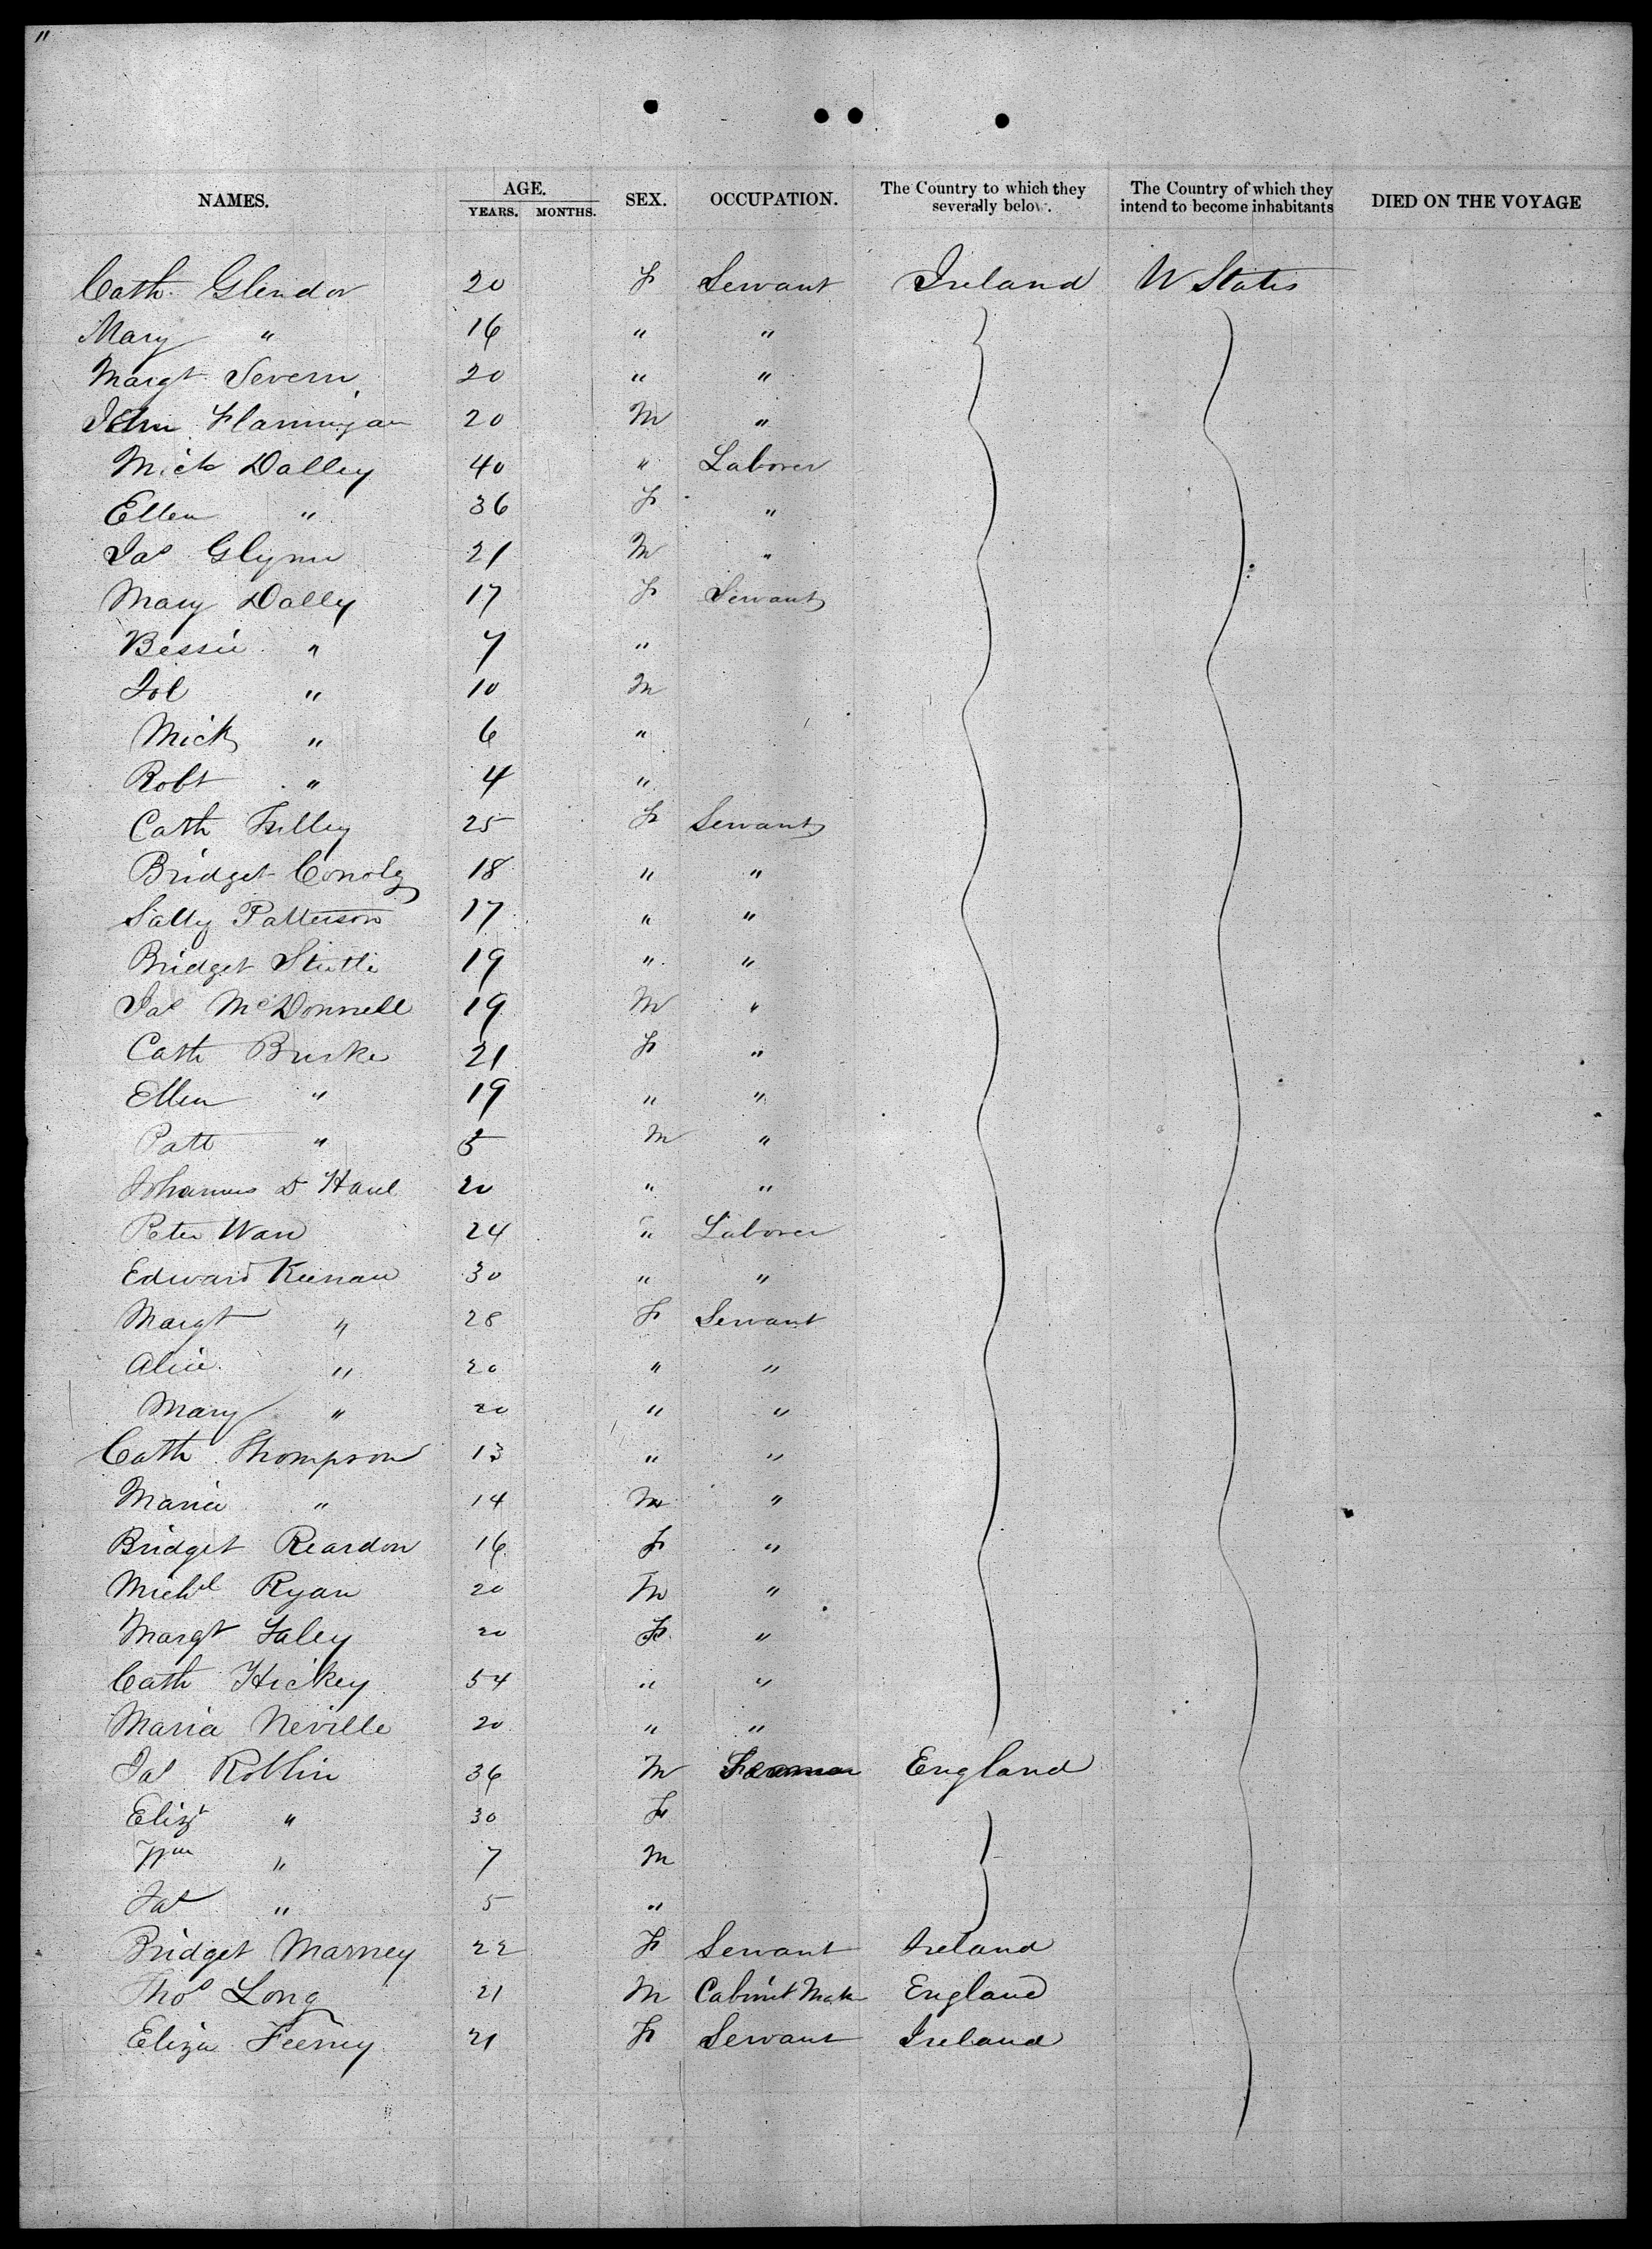 "
NAMES. AGE. YEARS. MONTHS. SEX. OCCUPATION. The Country to which they severally belong. The Country of which they intend to become inhabitants DIED ON THE VOYAGE
Cath. Glendon 20 F Servant Ireland U States
Mary " 16 " "
Margt Severn 20 " "
John Flannigan 20 M "
Mick Dalley 40 " Laborer
Ellen " 36 F "
Jas Glynn 21 M "
Mary Dally 17 F Servant
Bessie " 7 "
Jos " 10 M
Mick " 6 "
Robt " 4 "
Cath Tulley 25 F Servant
Bridget Conoly 18 " "
Sally Patterson 17 " "
Bridget 19 " "
Jas McDonnell 19 M "
Cath Burke 21 F "
Ellen " 19 " "
Patt " 5 M "
20 " "
Peter Wan 24 " Laborer
Edward Keenan 30 " "
Margt " 28 F Servant
Alice " 20 " "
Mary " 20 " "
Cath Thompson 13 " "
Maria " 14 M "
Bridget Reardon 16 F "
Michl Ryan 20 M "
Margt Faley 20 F "
Cath Hickey 54 " "
Maria Neville 20 " "
Jas Roblin 36 M England
Eliz " 30 F
Wm " 7 M
Jas " 5 "
Bridget Marney 22 F Servant Ireland
Thos Long 21 M Cabinet Mak England
Eliza Feeney 21 F Servant Ireland